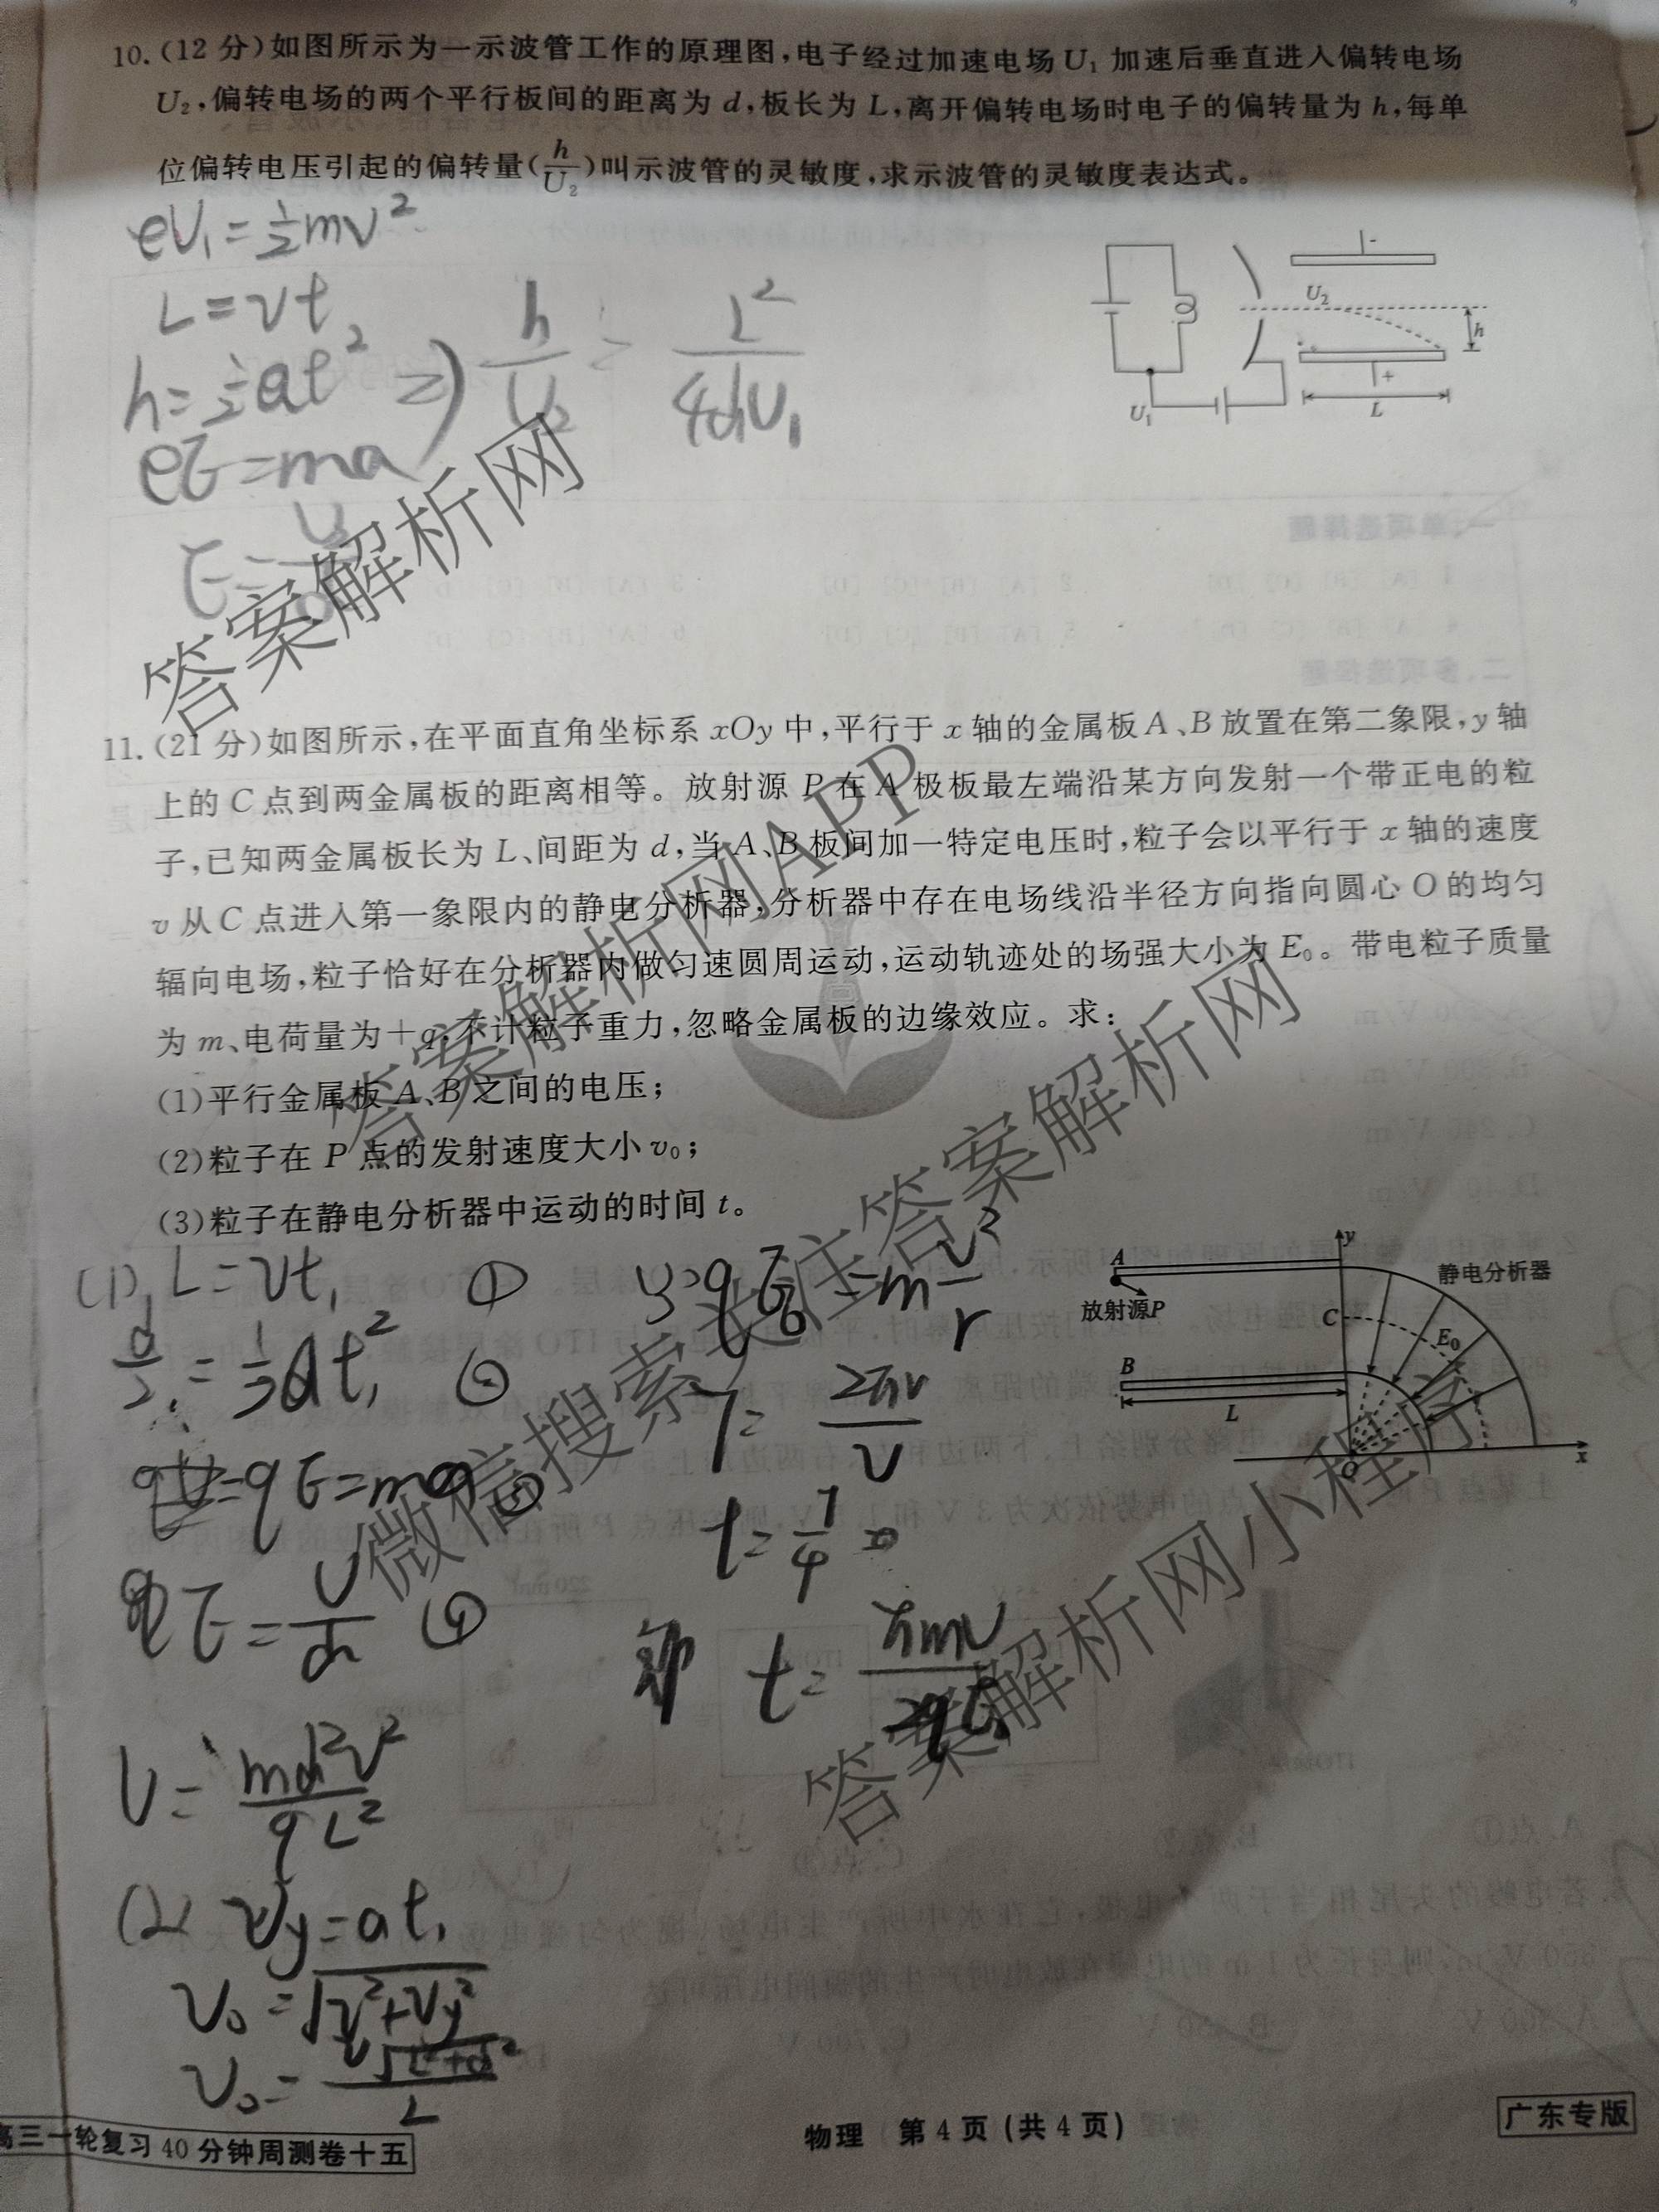 10.(12分)如图所示为一示波管工作的原理图,电子经过加速电场U₁加速后垂直进入偏转电场
U₂,偏转电场的两个平行板间的距离为d,板长为L,离开偏转电场时电子的偏转量为h,每单
位偏转电压引起的偏转量(h/U₂)叫示波管的灵敏度,求示波管的灵敏度表达式。
eU₁=½mv²
L=vt
h=½at²
eE=ma
⇒ h/U₂ = L²/4dU₁
- U₂ h + L U₁
11.(21分)如图所示,在平面直角坐标系xOy中,平行于x轴的金属板A、B放置在第二象限,y轴
上的C点到两金属板的距离相等。放射源P在A极板最左端沿某方向发射一个带正电的粒
子,已知两金属板长为L、间距为d,当A、B板间加一特定电压时,粒子会以平行于x轴的速度
v从C点进入第一象限内的静电分析器,分析器中存在电场线沿半径方向指向圆心O的均匀
辐向电场,粒子恰好在分析器内做匀速圆周运动,运动轨迹处的场强大小为E₀。带电粒子质量
为m、电荷量为+q,不计粒子重力,忽略金属板的边缘效应。求:
(1)平行金属板A、B之间的电压;
(2)粒子在P点的发射速度大小v₀;
(3)粒子在静电分析器中运动的时间t。
A 放射源P B L C y 静电分析器 E₀ O x
(1) L=vt₁ ①
d/2=½at₁² ②
qE=ma ③
E=U/d ④
U=md²v²/qL²
(2) vy=at₁
v₀=√(v²+vy²)
v₀=v√(L²+d²)/L
(3) qE₀=mv²/r
T=2πr/v
t=T/4
t=πmv/2qE₀
高三一轮复习40分钟周测卷十五
物理 第4页(共4页)
广东专版
答案解析网
答案解析网APP
微信搜索关注答案解析网
答案解析网小程序